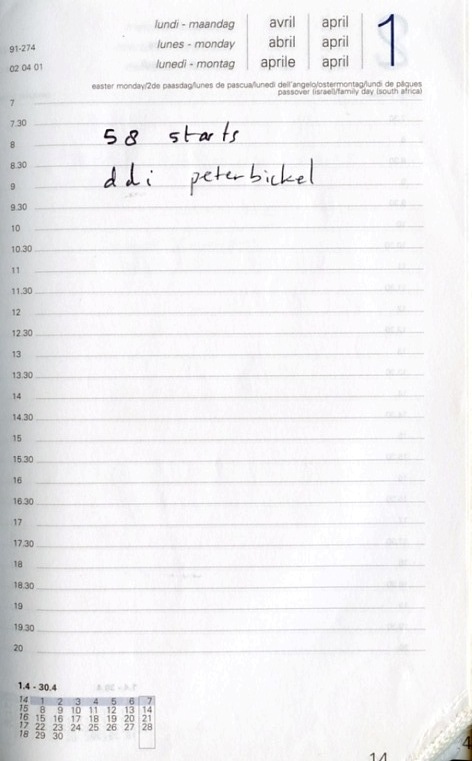 lundi - maandag avril april 1
lunes - monday abril april
lunedi - montag aprile april
91-274
02 04 01
easter monday/2de paasdag/lunes de pascua/lunedi dell'angelo/ostermontag/lundi de pâques
passover (israel)/family day (south africa)
7
7.30
58 starts
8
8.30
ddi peterbickel
9
9.30
10
10.30
11
11.30
12
12.30
13
13.30
14
14.30
15
15.30
16
16.30
17
17.30
18
18.30
19
19.30
20
1.4 - 30.4
14 1 2 3 4 5 6 7
15 8 9 10 11 12 13 14
16 15 16 17 18 19 20 21
17 22 23 24 25 26 27 28
18 29 30
14
4